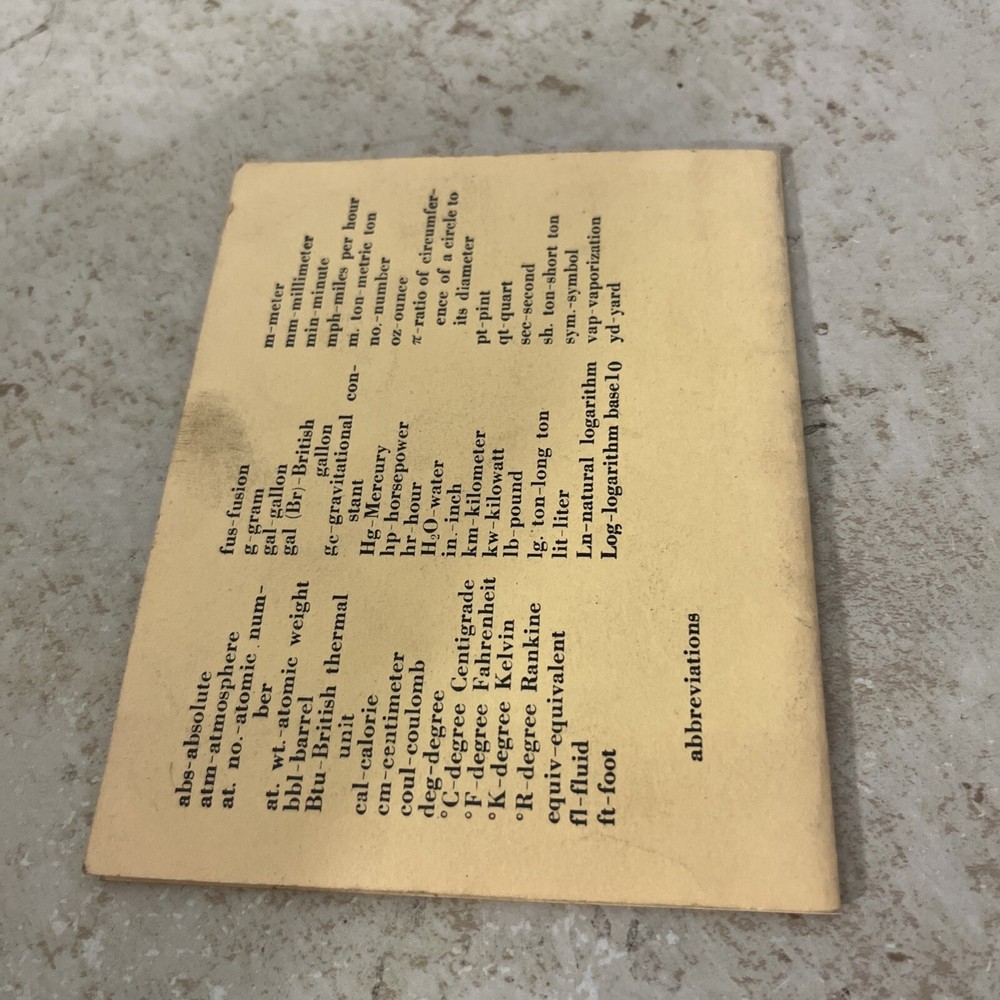 abs-absolute
atm-atmosphere
at. no.-atomic num-
ber
at. wt.-atomic weight
bbl-barrel
Btu-British thermal
unit
cal-calorie
cm-centimeter
coul-coulomb
deg-degree
°C-degree Centigrade
°F-degree Fahrenheit
°K-degree Kelvin
°R-degree Rankine
equiv-equivalent
fl-fluid
ft-foot
fus-fusion
g-gram
gal-gallon
gal (Br)-British
gallon
gc-gravitational con-
stant
Hg-Mercury
hp-horsepower
hr-hour
H₂O-water
in.-inch
km-kilometer
kw-kilowatt
lb-pound
lg. ton-long ton
lit-liter
Ln-natural logarithm
Log-logarithm base10
m-meter
mm-millimeter
min-minute
mph-miles per hour
m. ton-metric ton
no.-number
oz-ounce
π-ratio of circumfer-
ence of a circle to
its diameter
pt-pint
qt-quart
sec-second
sh. ton-short ton
sym.-symbol
vap-vaporization
yd-yard
abbreviations